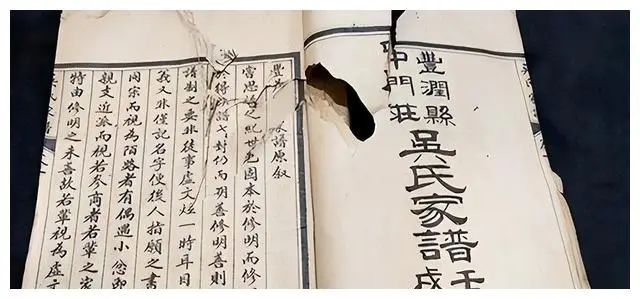 豐潤縣
中門莊
吳氏家譜
豐 譜原叙
嘗思譜之紀世也固本於修明而修
於得 譜 對仍而 善修明善則
譜 之要非徒事虛文炫一時耳目
義又非僅記名字便後人指顧之書
同宗而視為陌路者有偶遇小忿即
親支近派而視若參商者若輩之家
特由修明之未善故若輩視為虛文